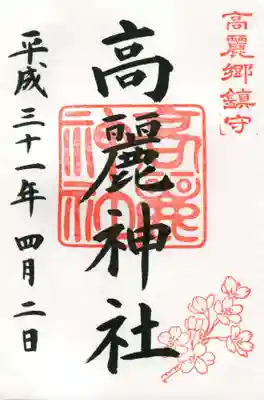 高麗郷鎮守
高麗神社
高麗神社
平成三十一年 四月二日